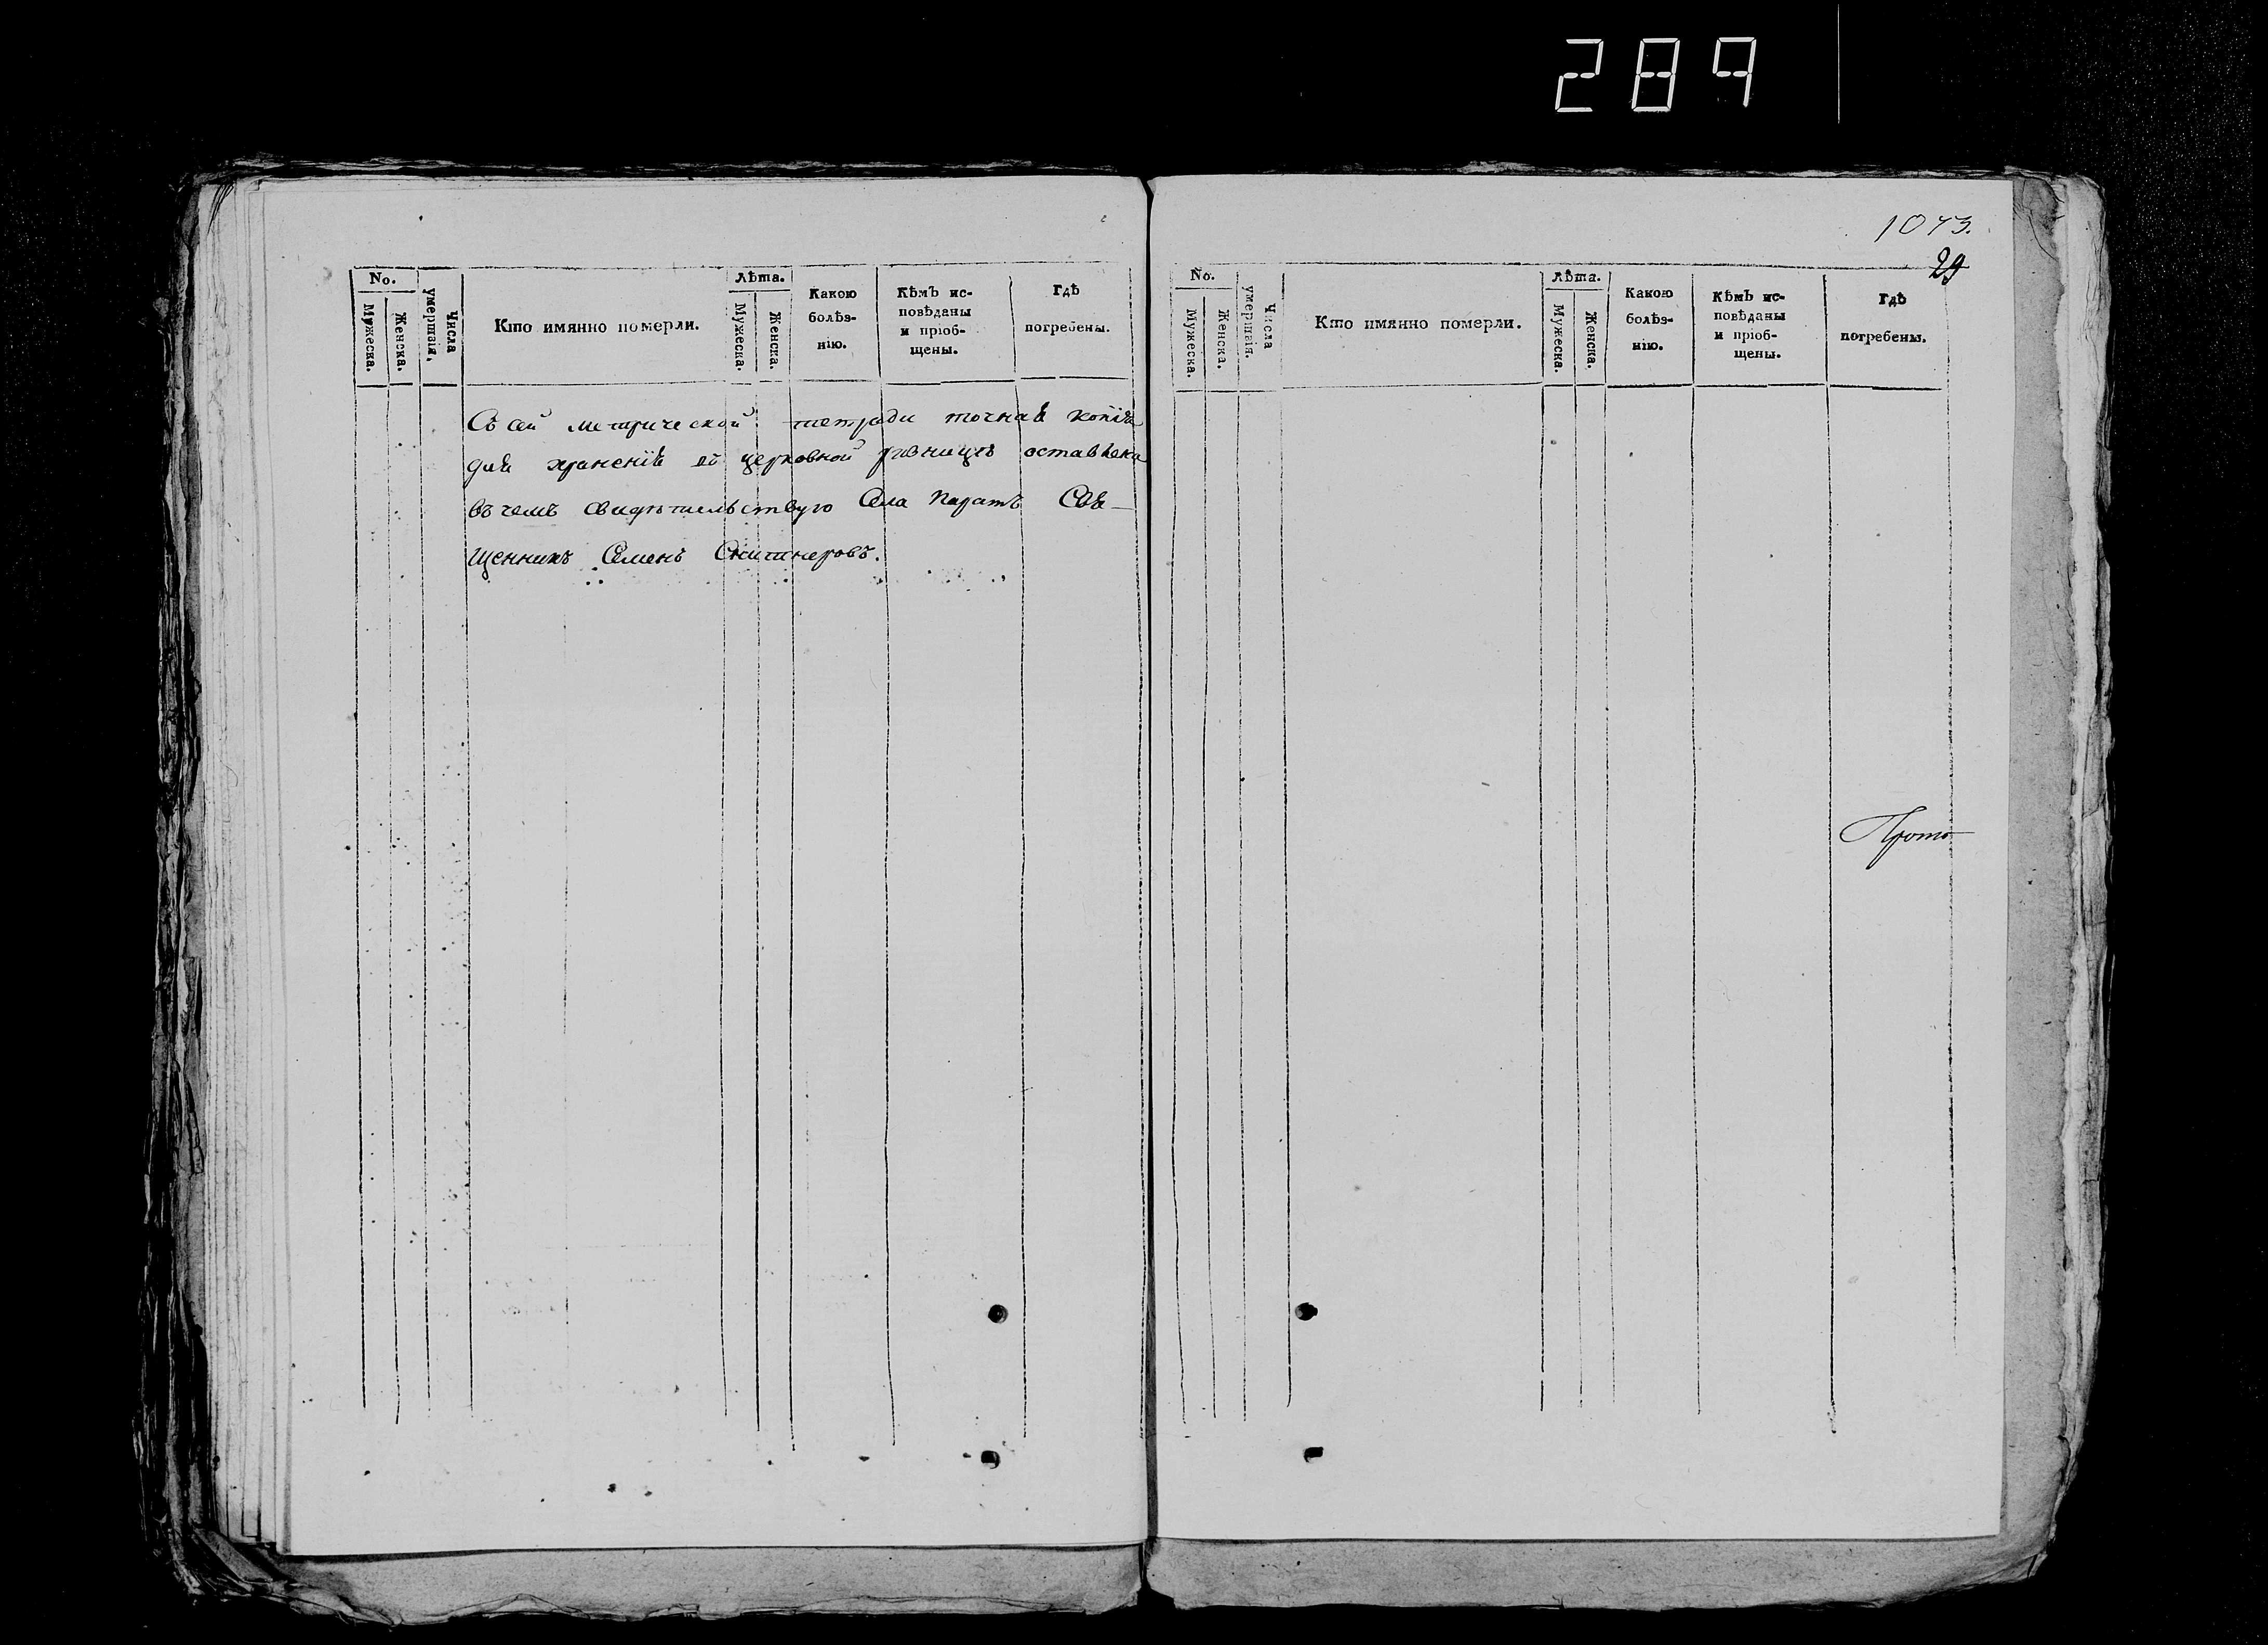 289
No.
Мужеска.
Женска.
Числа умершія.
Кто имянно померли.
Лѣта.
Мужеска.
Женска.
Какою
болѣз-
нію.
Кѣмъ ис-
повѣданы
и пріоб-
щены.
Гдѣ
погребены.
Съ сей метрической тетради точная копія
для хранения въ церковной ризницѣ оставлена
въ чемъ свидѣтельствую Села Паратъ Свя-
щенникъ Семенъ
1043.
29
No.
Мужеска.
Женска.
Числа умершія.
Кто имянно померли.
Лѣта.
Мужеска.
Женска.
Какою
болѣз-
нію.
Кѣмъ ис-
повѣданы
и пріоб-
щены.
Гдѣ
погребены.
Прото